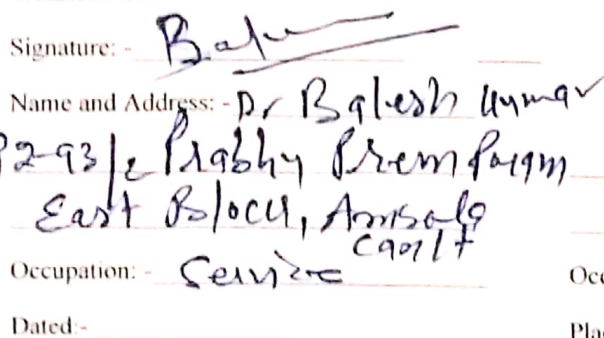 Signature: -
Name and Address: - Dr Balesh Kumar
Prabhu Prem Puram
East Block, Ambala
Cantt
Occupation: - Service
Occ
Dated:-
Pla